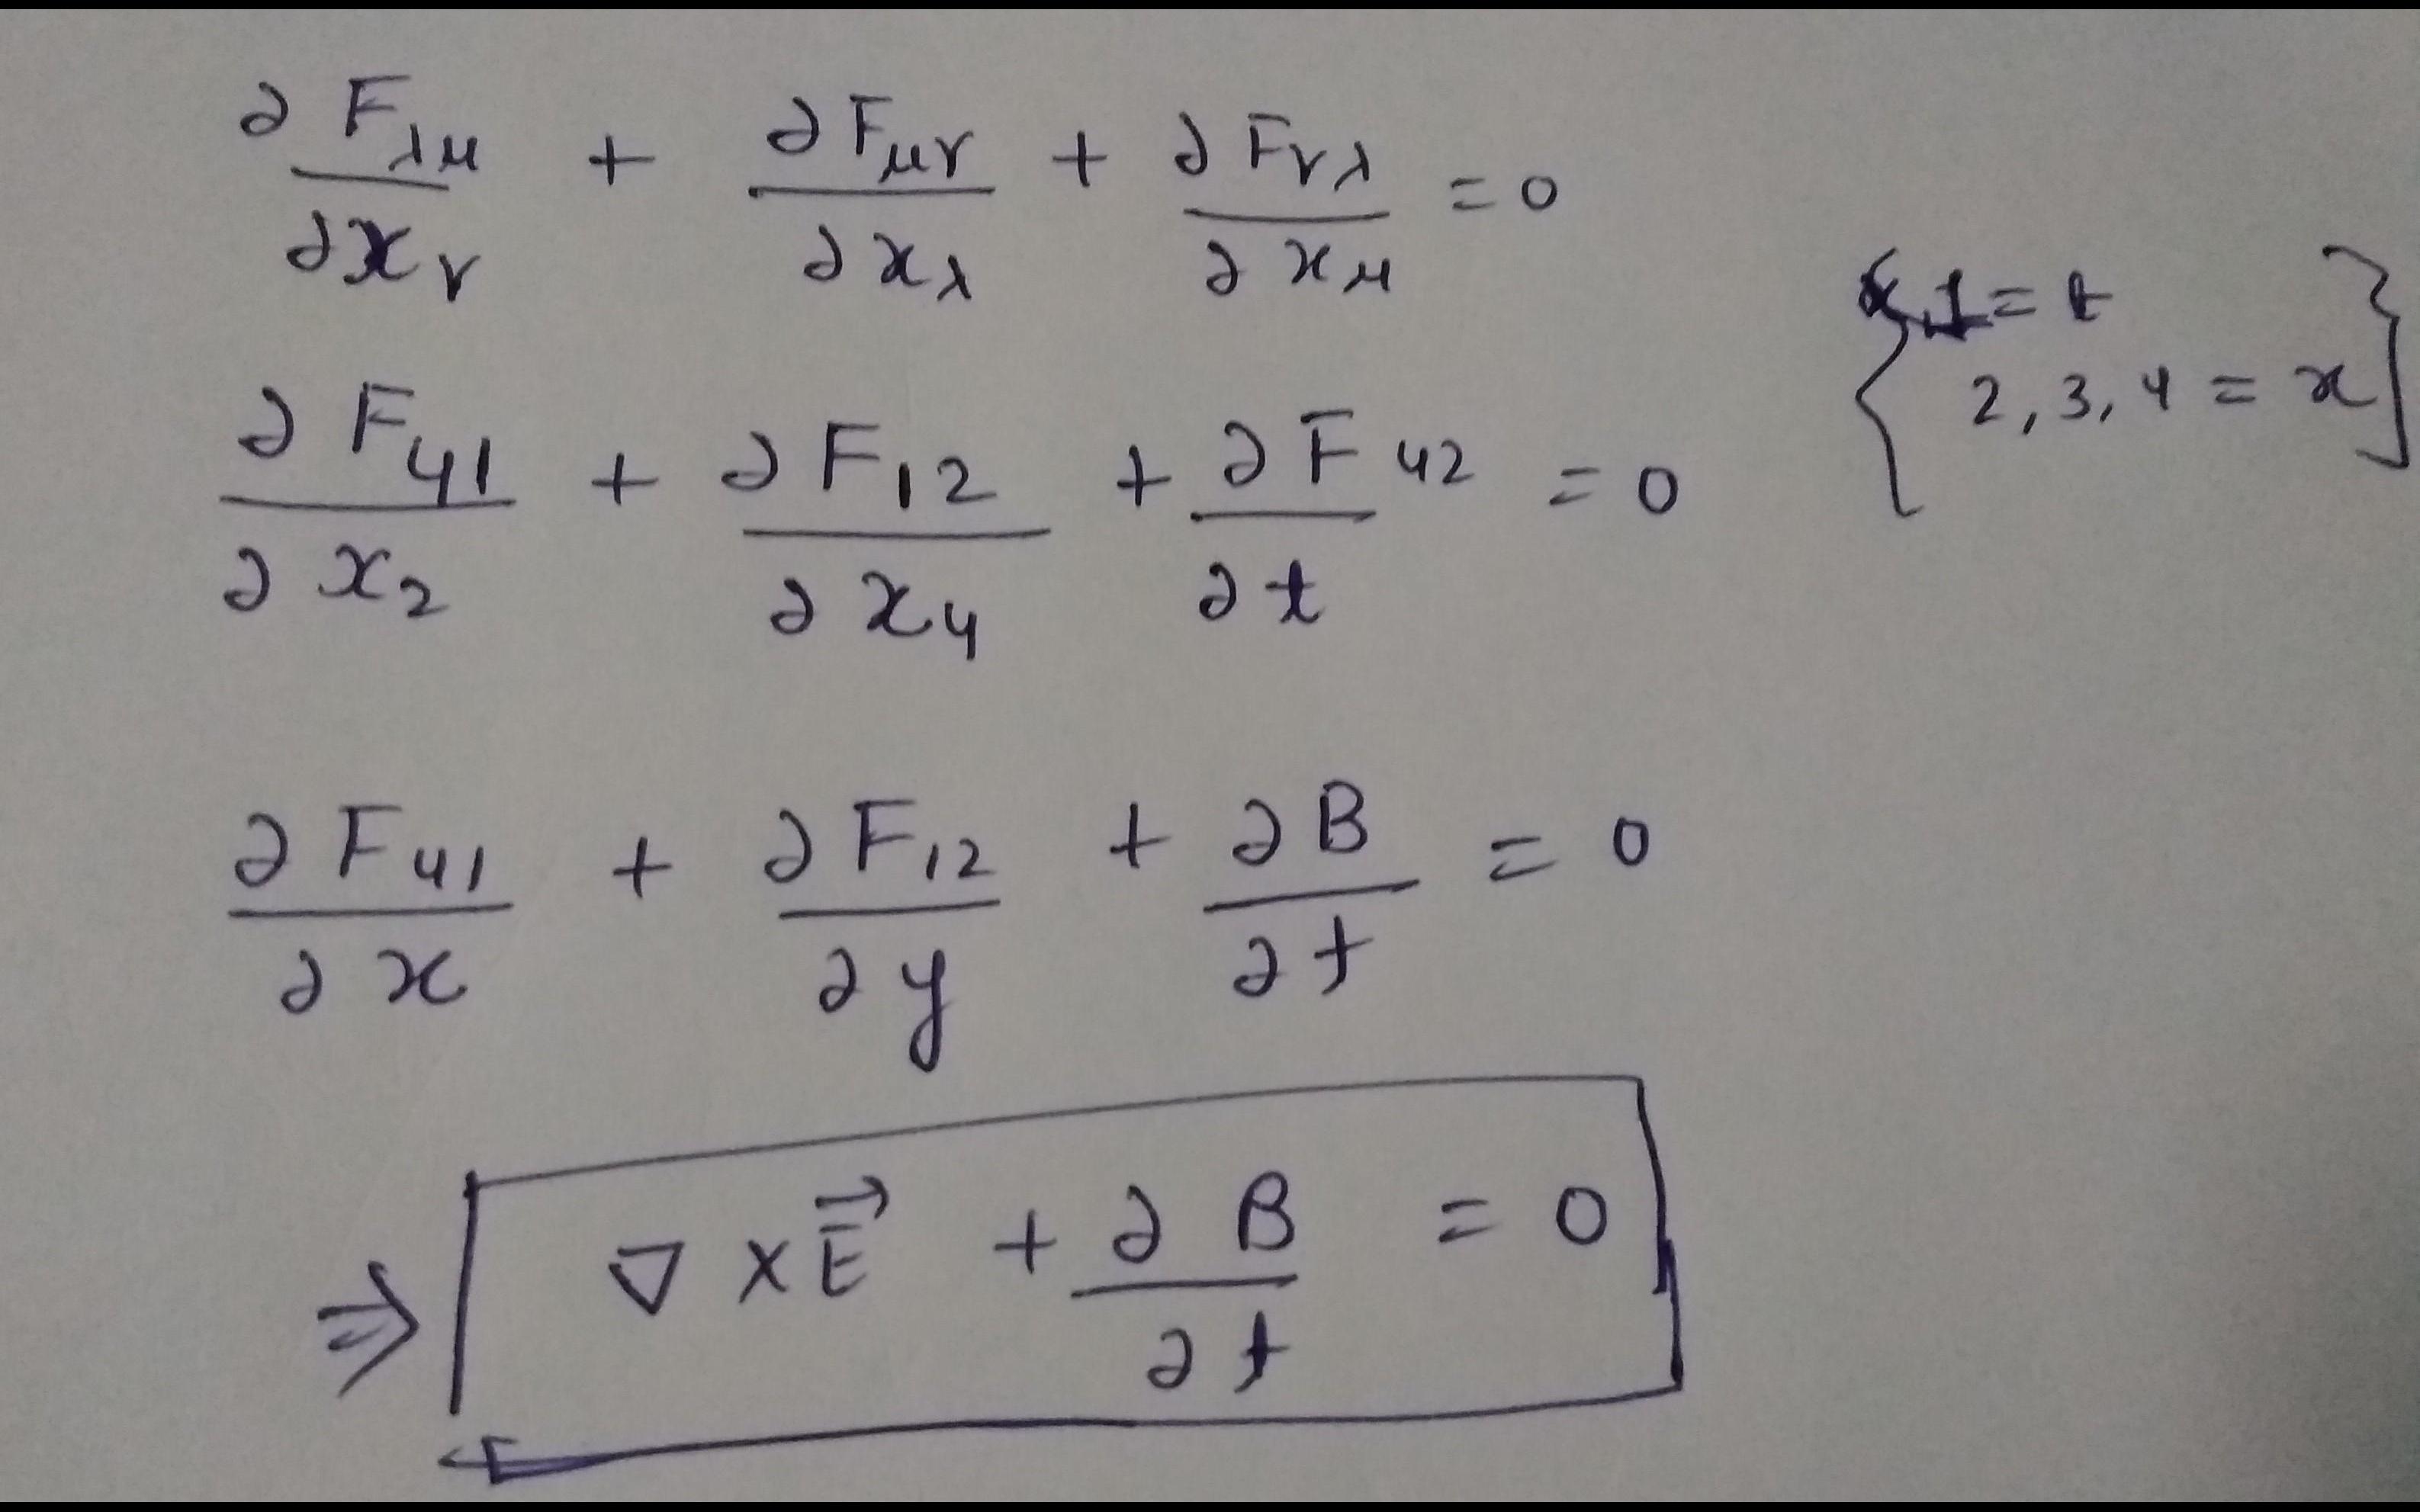 ∂F_λμ/∂x_ν + ∂F_μν/∂x_λ + ∂F_νλ/∂x_μ = 0
{1 = t
2, 3, 4 = x}
∂F_41/∂x_2 + ∂F_12/∂x_4 + ∂F_42/∂t = 0
∂F_41/∂x + ∂F_12/∂y + ∂B/∂t = 0
⇒ ∇ × E⃗ + ∂B/∂t = 0